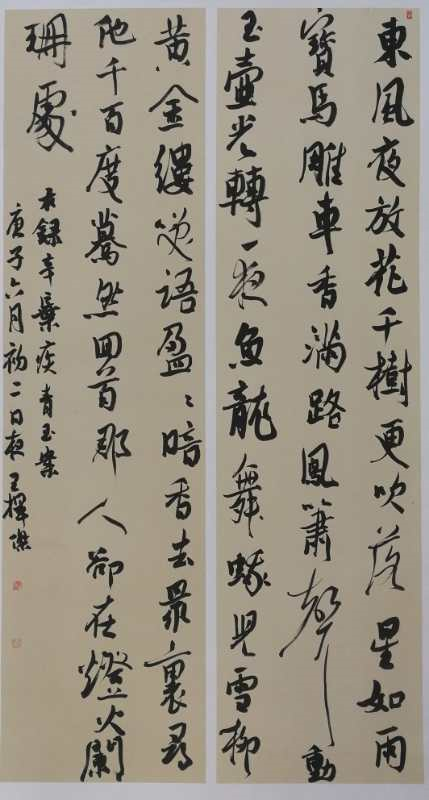 東風夜放花千樹更吹落星如雨
寶馬雕車香滿路鳳簫聲動
玉壺光轉一夜魚龍舞蛾兒雪柳
黄金縷笑語盈〻暗香去眾裏尋
他千百度驀然回首那人卻在燈火闌
珊處
右錄辛棄疾青玉案
庚子六月初二日夜王